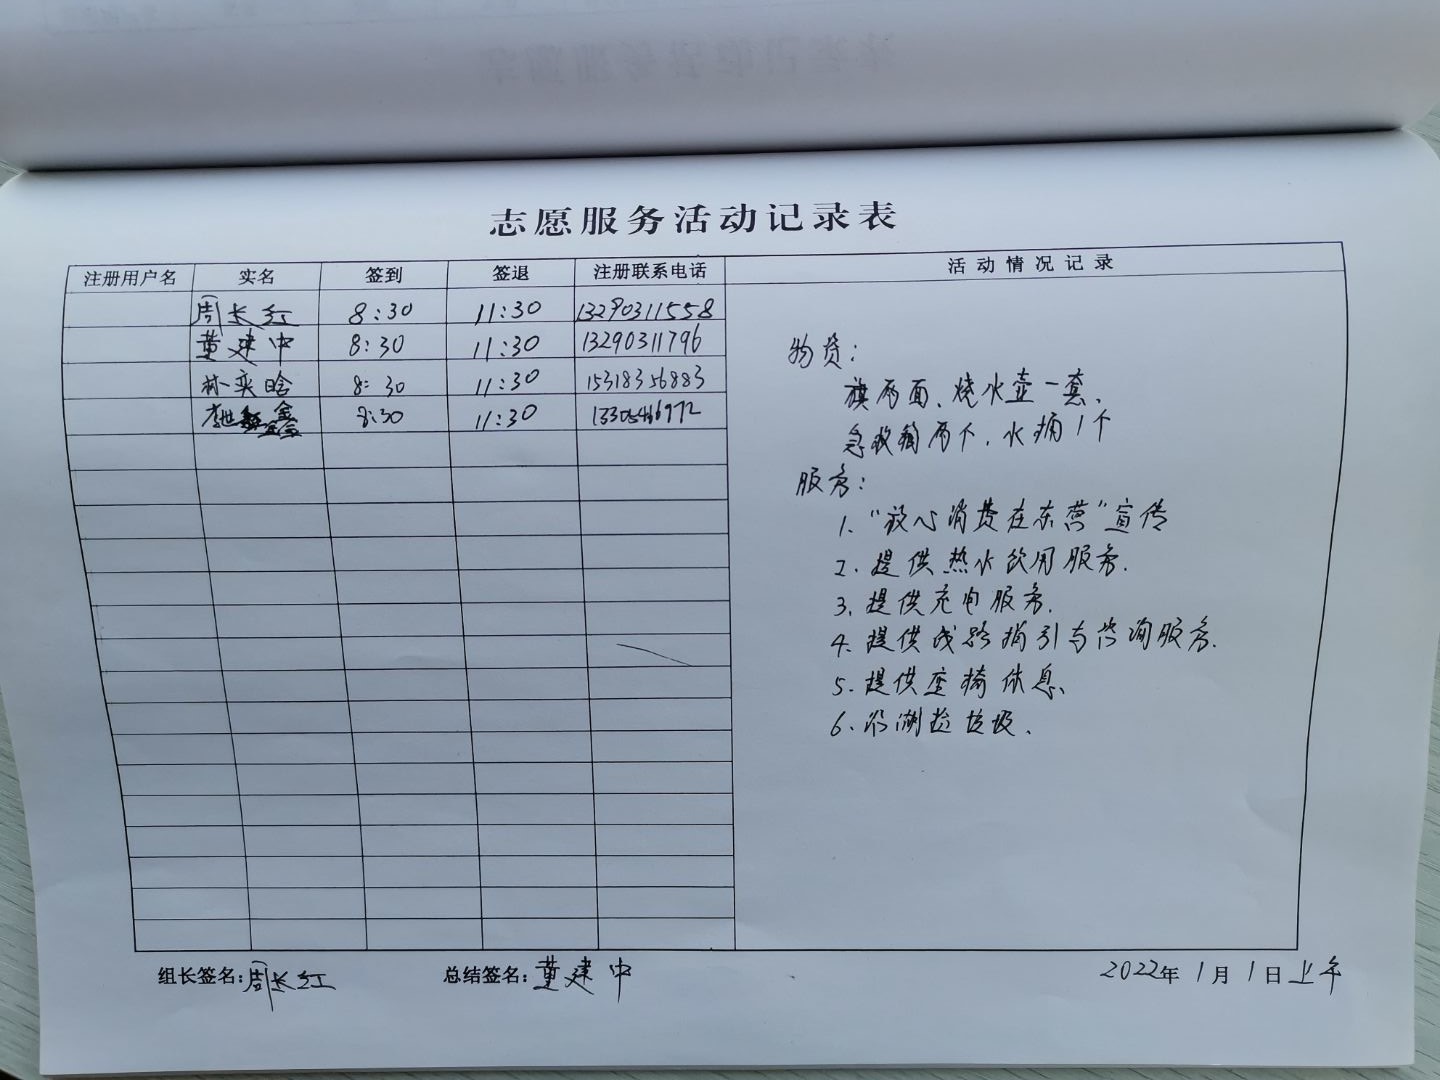 志愿服务活动记录表
注册用户名 实名 签到 签退 注册联系电话 活动情况记录
周长红 8:30 11:30 13290311558
董建中 8:30 11:30 13290311796
林奕晗 8:30 11:30 15318356883
李世 8:30 11:30 13305466972
物资:
旗两面、烧水壶一套、
急救箱两个,水桶1个
服务:
1. “放心消费在东营”宣传
2. 提供热水饮用服务.
3. 提供充电服务.
4. 提供线路指引与咨询服务.
5. 提供座椅休息、
6. 沿湖捡垃圾.
组长签名:周长红 总结签名:董建中 2022年1月1日上午